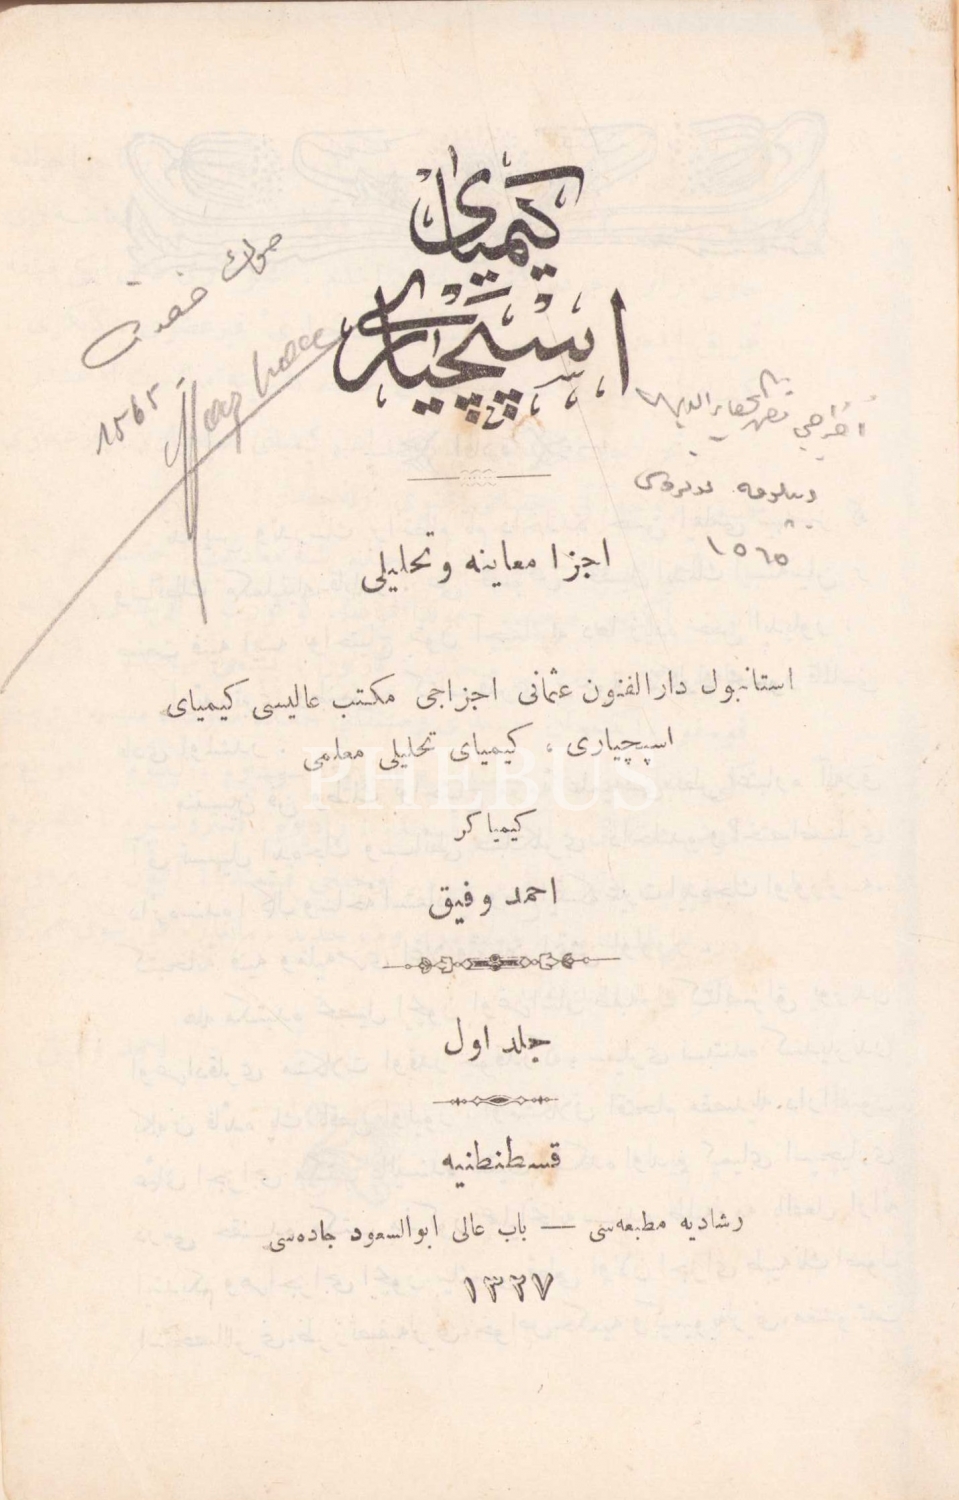 كيمياى
اسپچيارى
1565
١٥٦٥
اجزا معاينه و تحليلى
استانبول دارالفنون عثمانى اجزاجى مكتب عاليسى كيمياى
اسپچيارى ، كيمياى تحليلى معلمى
PHEBUS
كيمياكر
احمد وفيق
جلد اول
قسطنطنيه
رشاديه مطبعه‌سى — باب عالى ابوالسعود جاده‌سى
١٣٢٧